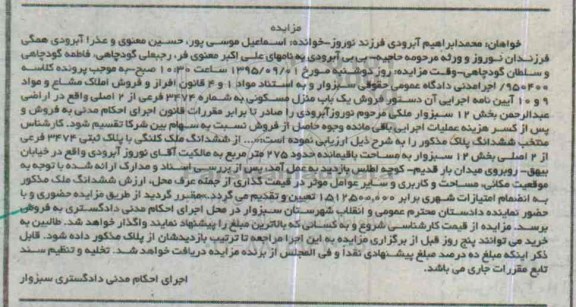 مزایده
خواهان: محمدابراهیم آبرودی فرزند نوروز-خوانده: اسماعیل موسی پور، حسین معنوی و عذرا آبرودی همگی
فرزندان نوروز و ورثه مرحومه حاجیه بی بی آبرودی به نامهای علی اکبر معنوی فر، رجبعلی گودچاهی، فاطمه گودچاهی
و سلطان گودچاهی-وقت مزایده: روز دوشنبه مورخ ۱۳۹۵/۰۹/۰۱ ساعت ۱۰:۳۰ صبح-به موجب پرونده کلاسه
۹۵۰۴۰۰/ اجرامدنی دادگاه عمومی حقوقی سبزوار و به استناد مواد ۱ و ۴ قانون افراز و فروش املاک مشاع و مواد
۹ و ۱۰ آیین نامه اجرایی آن دستور فروش یک باب منزل مسکونی به شماره ۳۴۷۴ فرعی از ۲ اصلی واقع در اراضی
عبدالرحمن بخش ۱۲ سبزوار ملکی مرحوم نوروزآبرودی را صادر تا برابر مقررات قانون اجرای احکام مدنی به فروش و
پس از کسر هزینه عملیات اجرایی باقی مانده وجوه حاصل از فروش نسبت به سهام بین شرکا تقسیم شود. کارشناس
منتخب ششدانگ پلاک مذکور را به شرح ذیل ارزیابی نموده است«... از ششدانگ ملک کلنگی با پلاک ثبتی ۳۴۷۴ فرعی
از ۲ اصلی بخش ۱۲ سبزوار به مساحت باقیمانده حدود ۲۷۵ متر مربع به مالکیت آقای نوروز آبرودی واقع در خیابان
بیهق- روبروی میدان بار قدیم- کوچه اطلس بازدید به عمل آمد، پس از بررسی اسناد و مدارک ارائه شده با توجه به
موقعیت مکانی، مساحت و کاربری و سایر عوامل موثر در قیمت گذاری از جمله عرف محل، ارزش ششدانگ ملک مذکور
به انضمام امتیازات شهری برابر ۱۵۱۲۵۰۰،۰۰۰ تعیین و تقدیم می گردد.» مقرر گردید از طریق مزایده حضوری و با
حضور نماینده دادستان محترم عمومی و انقلاب شهرستان سبزوار در محل اجرای احکام مدنی دادگستری به فروش
برسد. مزایده از قیمت کارشناسی شروع و به کسانی که بالاترین مبلغ را پیشنهاد نمایند واگذار خواهد شد. طالبین به
خرید می توانند پنج روز قبل از برگزاری مزایده به این اجرا مراجعه تا ترتیب بازدیدشان از پلاک مذکور داده شود. قابل
ذکر اینکه مبلغ ده درصد مبلغ پیشنهادی نقدا و فی المجلس از برنده مزایده دریافت خواهد شد. تخلیه و تنظیم سند
تابع مقررات جاری می باشد.
اجرای احکام مدنی دادگستری سبزوار